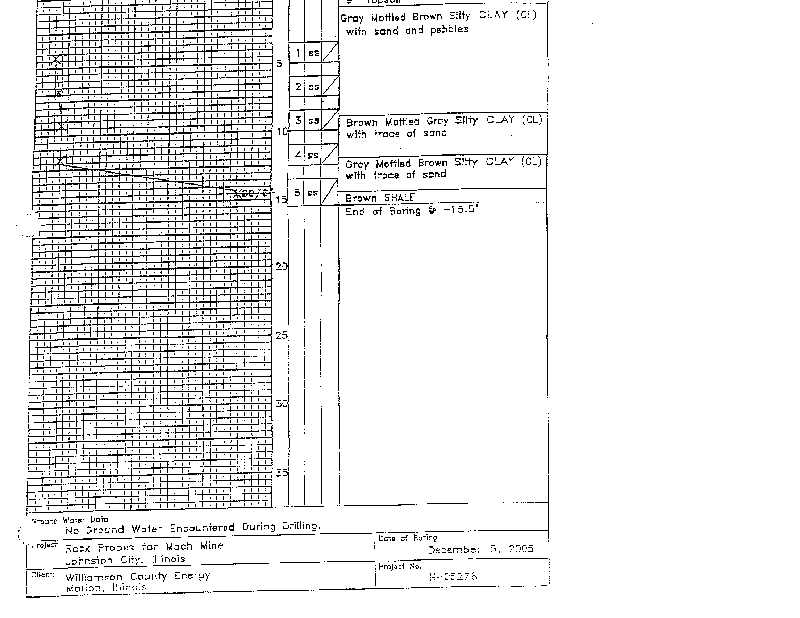 Gray Mottled Brown Silty CLAY (CL)
with sand and pebbles
1 ss
5
2 ss
3 ss
Brown Mottled Gray Silty CLAY (CL)
10
with trace of sand
4 ss
Gray Mottled Brown Silty CLAY (CL)
with trace of sand
5 ss
15
Brown SHALE
End of Boring @ -15.5'
20
25
30
35
Ground Water Data
No Ground Water Encountered During Drilling.
Project
Rock Probes for Mach Mine
Johnston City, Illinois
Date of Boring
December 5, 2005
Client
Williamson County Energy
Marion, Illinois
Project No.